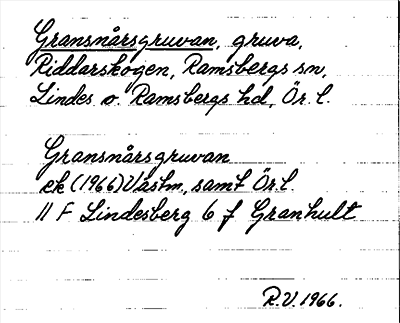 Gransnårsgruvan, gruva,
Riddarskogen, Ramsbergs sn,
Lindes o. Ramsbergs hd, Ör. l.
Gransnårsgruvan
ek (1966) Västm, samt Ör. l.
11 F Lindesberg 6 f Granhult
R.V. 1966.